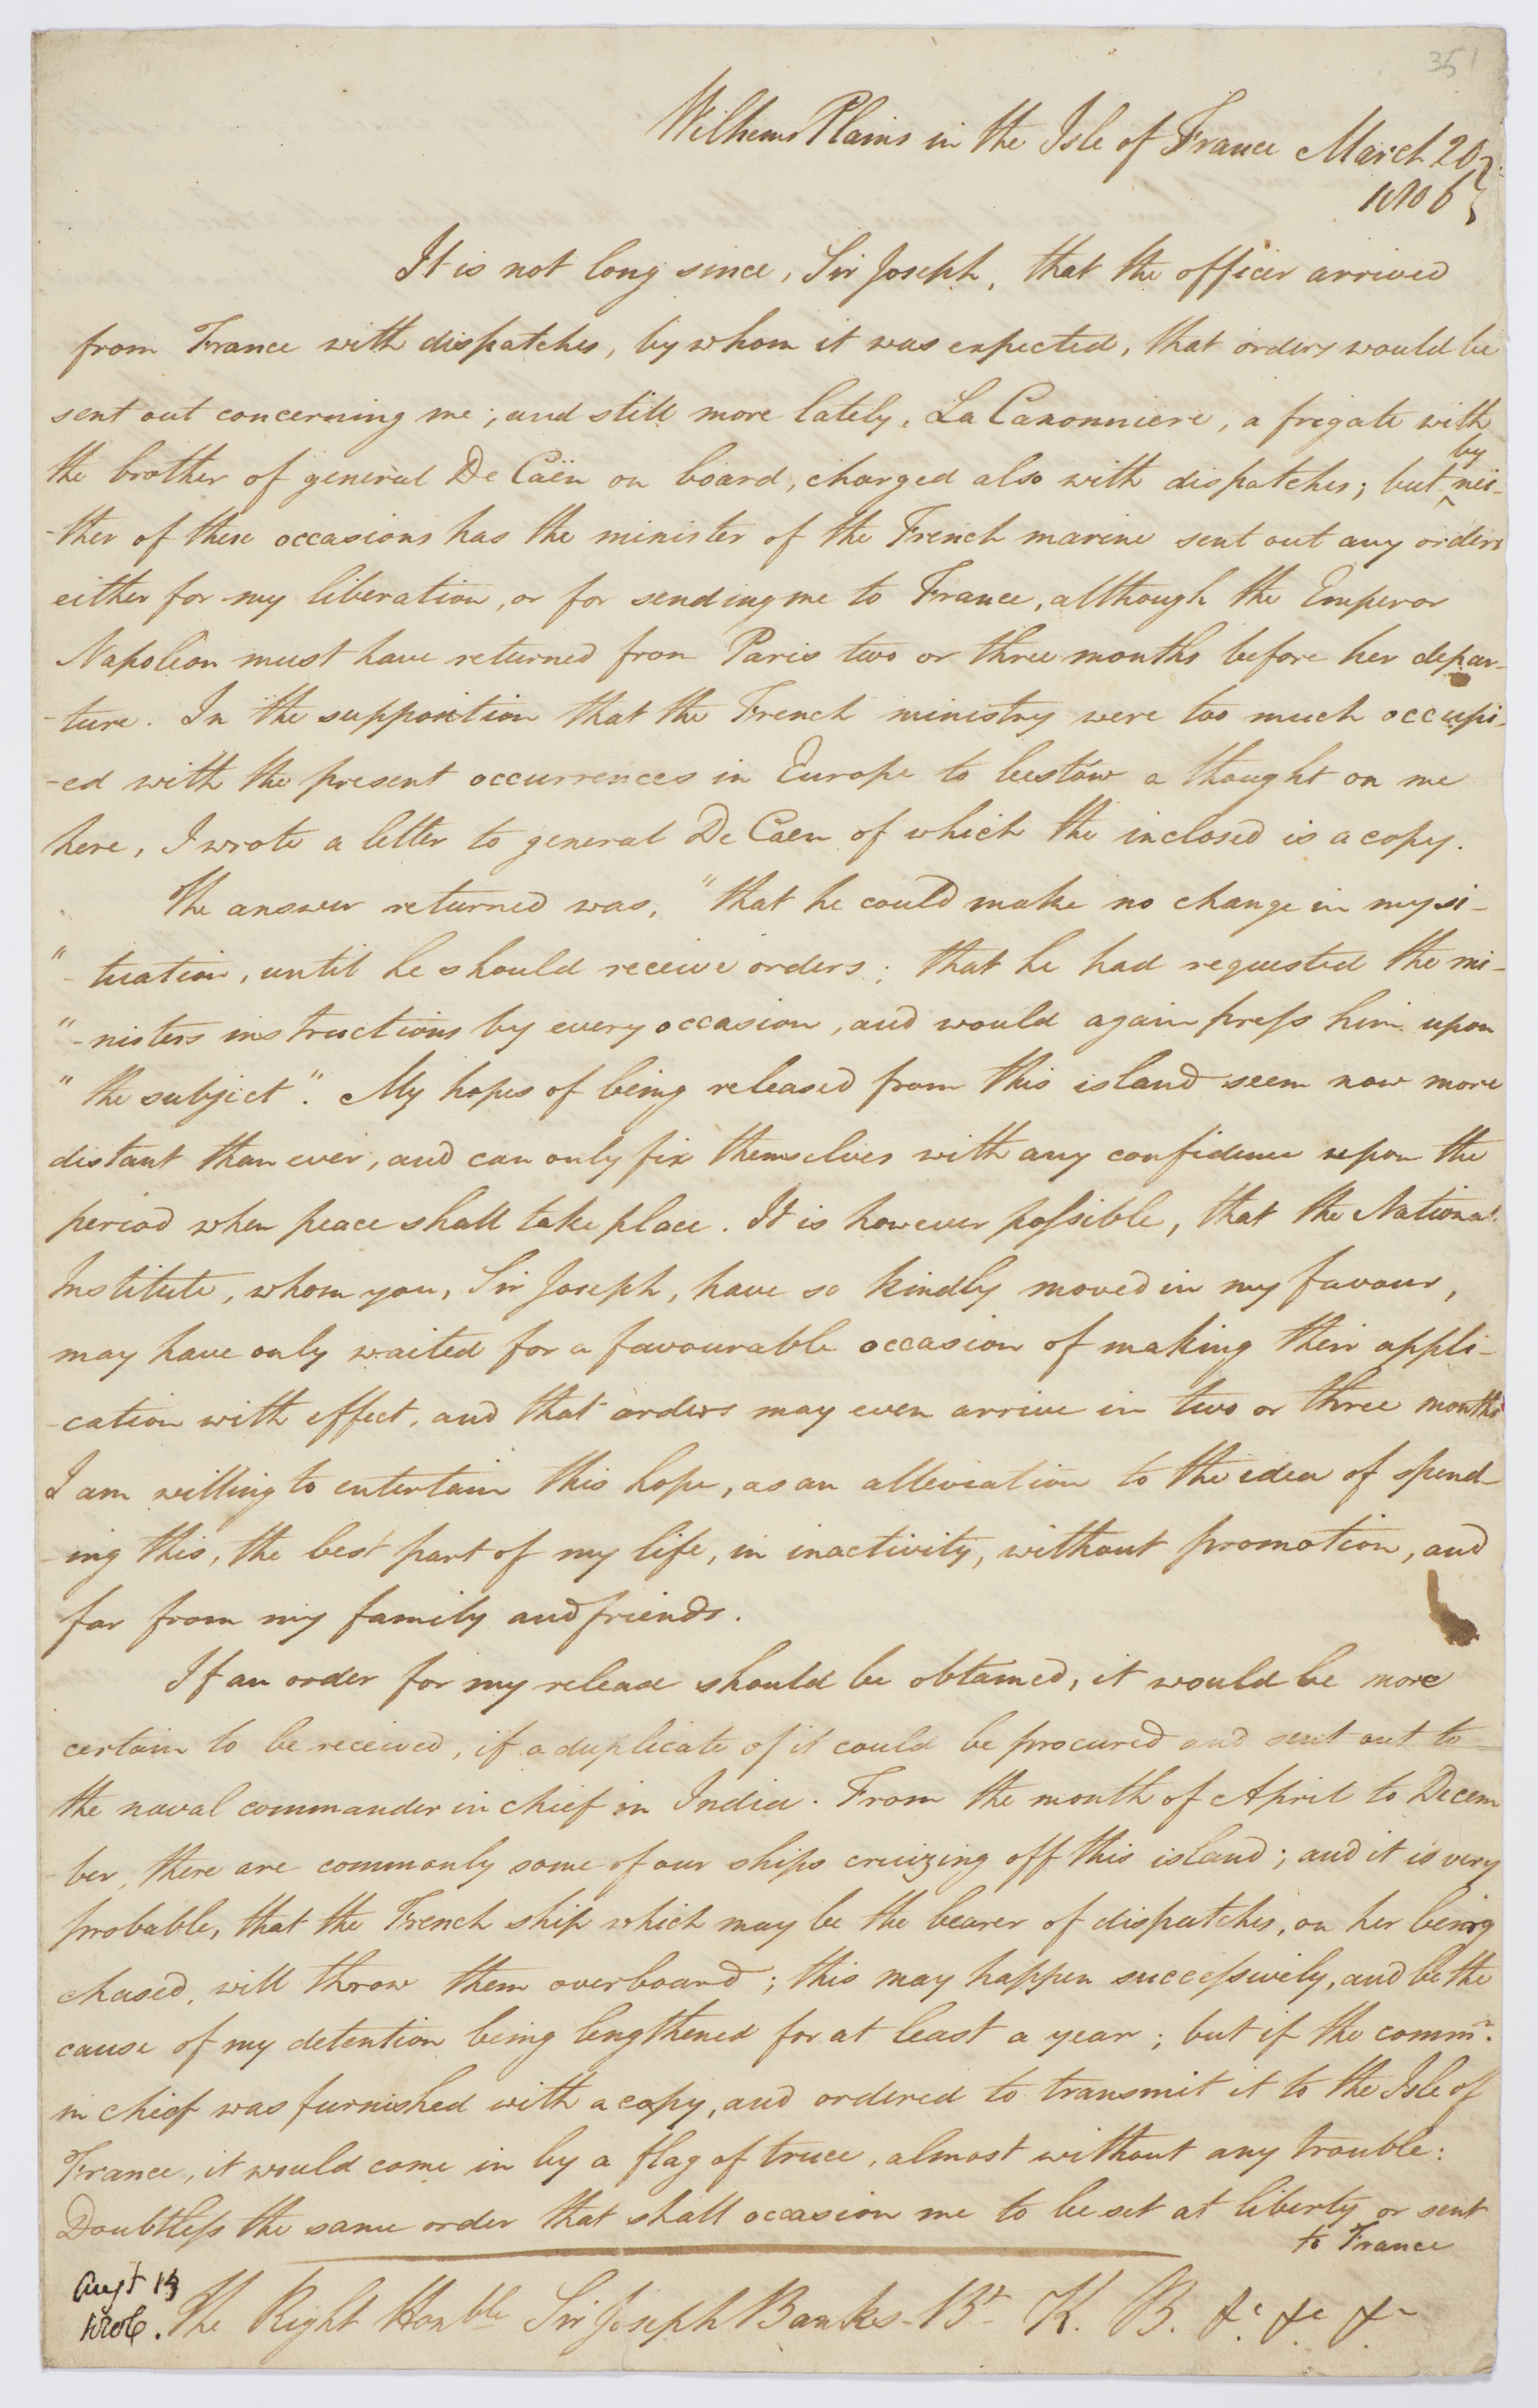 351
Wilhems Plains in the Isle of France March 20.
1806
It is not long since, Sir Joseph, that the officer arrived
from France with dispatches, by whom it was expected, that orders would be
sent out concerning me; and still more lately, La Canonniere, a frigate with
the brother of general De Caën on board, charged also with dispatches; but by nei-
-ther of these occasions has the minister of the French marine sent out any orders
either for my liberation, or for sending me to France, although the Emperor
Napoleon must have returned from Paris two or three months before her depar-
-ture. In the supposition that the French ministry were too much occupi-
-ed with the present occurrences in Europe to bestow a thought on me
here, I wrote a letter to general De Caen of which the inclosed is a copy.
The answer returned was, "that he could make no change in my si-
"-tuation, until he should receive orders; that he had requested the mi-
"-nisters instructions by every occasion, and would again press him upon
"the subject". My hopes of being released from this island seem now more
distant than ever, and can only fix themselves with any confidence upon the
period when peace shall take place. It is however possible, that the National
Institute, whom you, Sir Joseph, have so kindly moved in my favour,
may have only waited for a favourable occasion of making their appli-
-cation with effect, and that orders may even arrive in two or three months
I am willing to entertain this hope, as an alleviation to the idea of spend-
-ing this, the best part of my life, in inactivity, without promotion, and
far from my family and friends.
If an order for my release should be obtained, it would be more
certain to be received, if a duplicate of it could be procured and sent out to
the naval commander in chief in India. From the month of April to Decem
-ber, there are commonly some of our ships cruizing off this island; and it is very
probable, that the French ship which may be the bearer of dispatches, on her being
chased, will throw them overboard; this may happen successively, and be the
cause of my detention being lengthened for at least a year; but if the commr.
in chief was furnished with a copy, and ordered to transmit it to the Isle of
France, it would come in by a flag of truce, almost without any trouble:
Doubtless the same order that shall occasion me to be set at liberty or sent
to France
Augt 13
1806.
The Right Honble Sir Joseph Banks - Bt K. B. &c &c &c